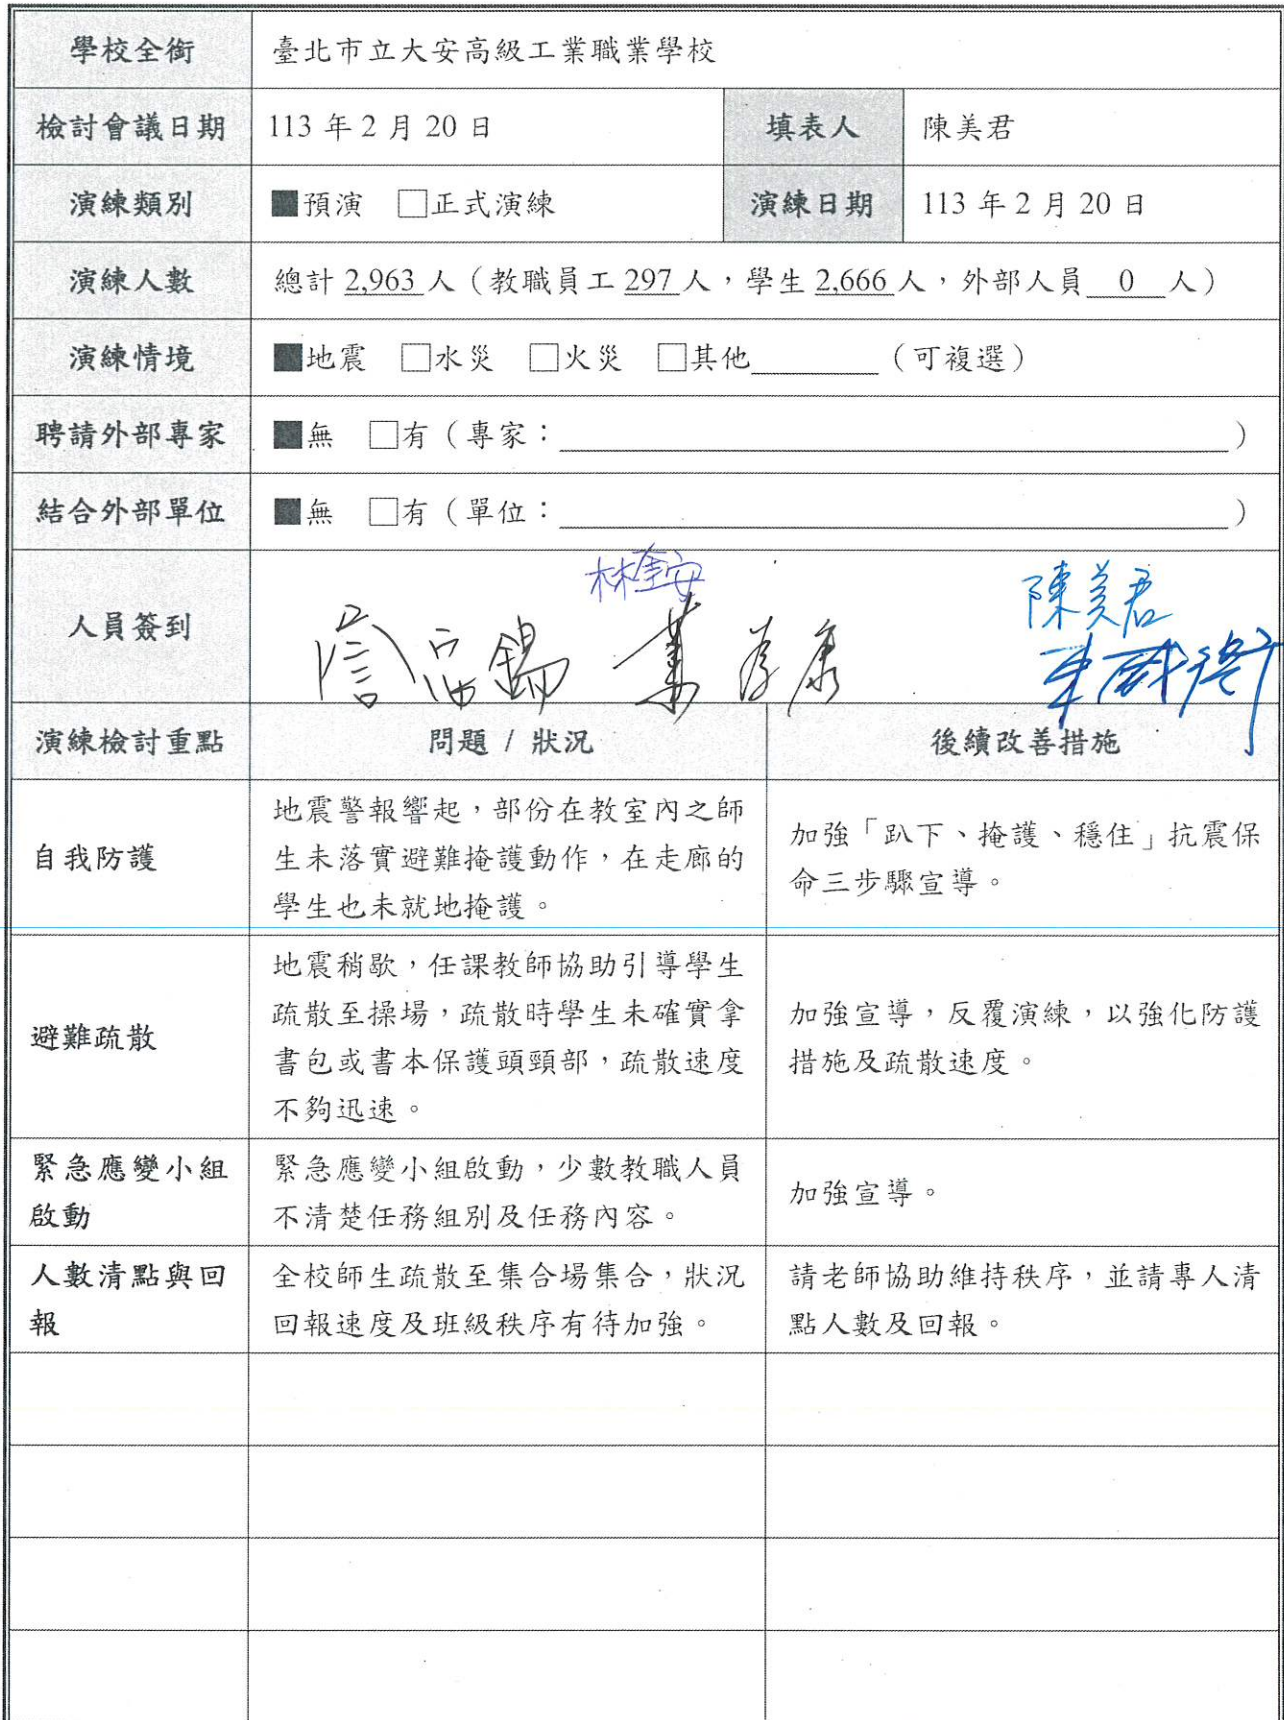 學校全銜 臺北市立大安高級工業職業學校
檢討會議日期 113 年 2 月 20 日 填表人 陳美君
演練類別 ■預演 □正式演練 演練日期 113 年 2 月 20 日
演練人數 總計 2,963 人（教職員工 297 人，學生 2,666 人，外部人員 0 人）
演練情境 ■地震 □水災 □火災 □其他________（可複選）
聘請外部專家 ■無 □有（專家：________）
結合外部單位 ■無 □有（單位：________）
人員簽到
陳美君
演練檢討重點 問題 / 狀況 後續改善措施
自我防護
地震警報響起，部份在教室內之師
生未落實避難掩護動作，在走廊的
學生也未就地掩護。
加強「趴下、掩護、穩住」抗震保
命三步驟宣導。
避難疏散
地震稍歇，任課教師協助引導學生
疏散至操場，疏散時學生未確實拿
書包或書本保護頭頸部，疏散速度
不夠迅速。
加強宣導，反覆演練，以強化防護
措施及疏散速度。
緊急應變小組
啟動
緊急應變小組啟動，少數教職人員
不清楚任務組別及任務內容。
加強宣導。
人數清點與回
報
全校師生疏散至集合場集合，狀況
回報速度及班級秩序有待加強。
請老師協助維持秩序，並請專人清
點人數及回報。